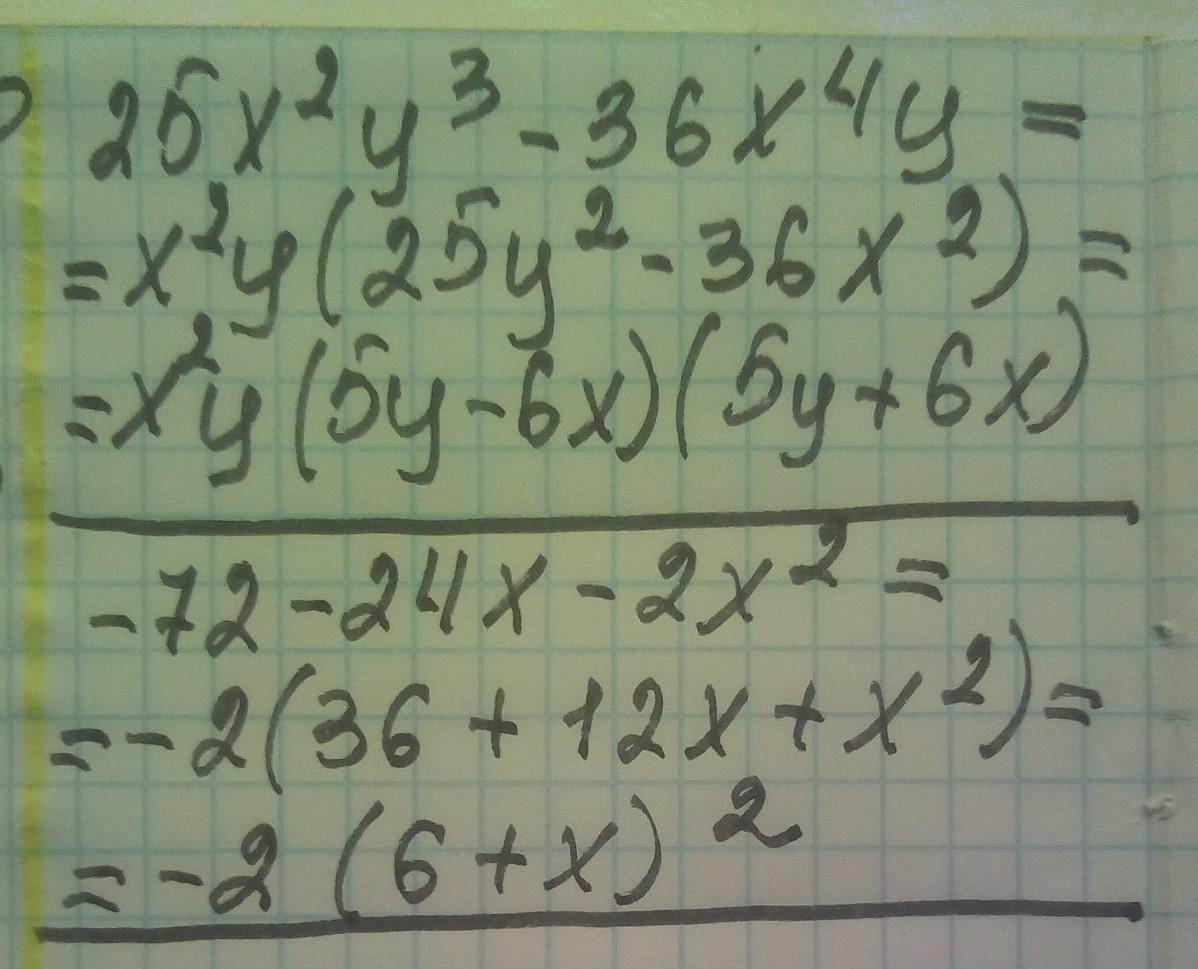 25x²y³ - 36x⁴y =
= x²y(25y² - 36x²) =
= x²y(5y - 6x)(5y + 6x)
-72 - 24x - 2x² =
= -2(36 + 12x + x²) =
= -2(6 + x)²